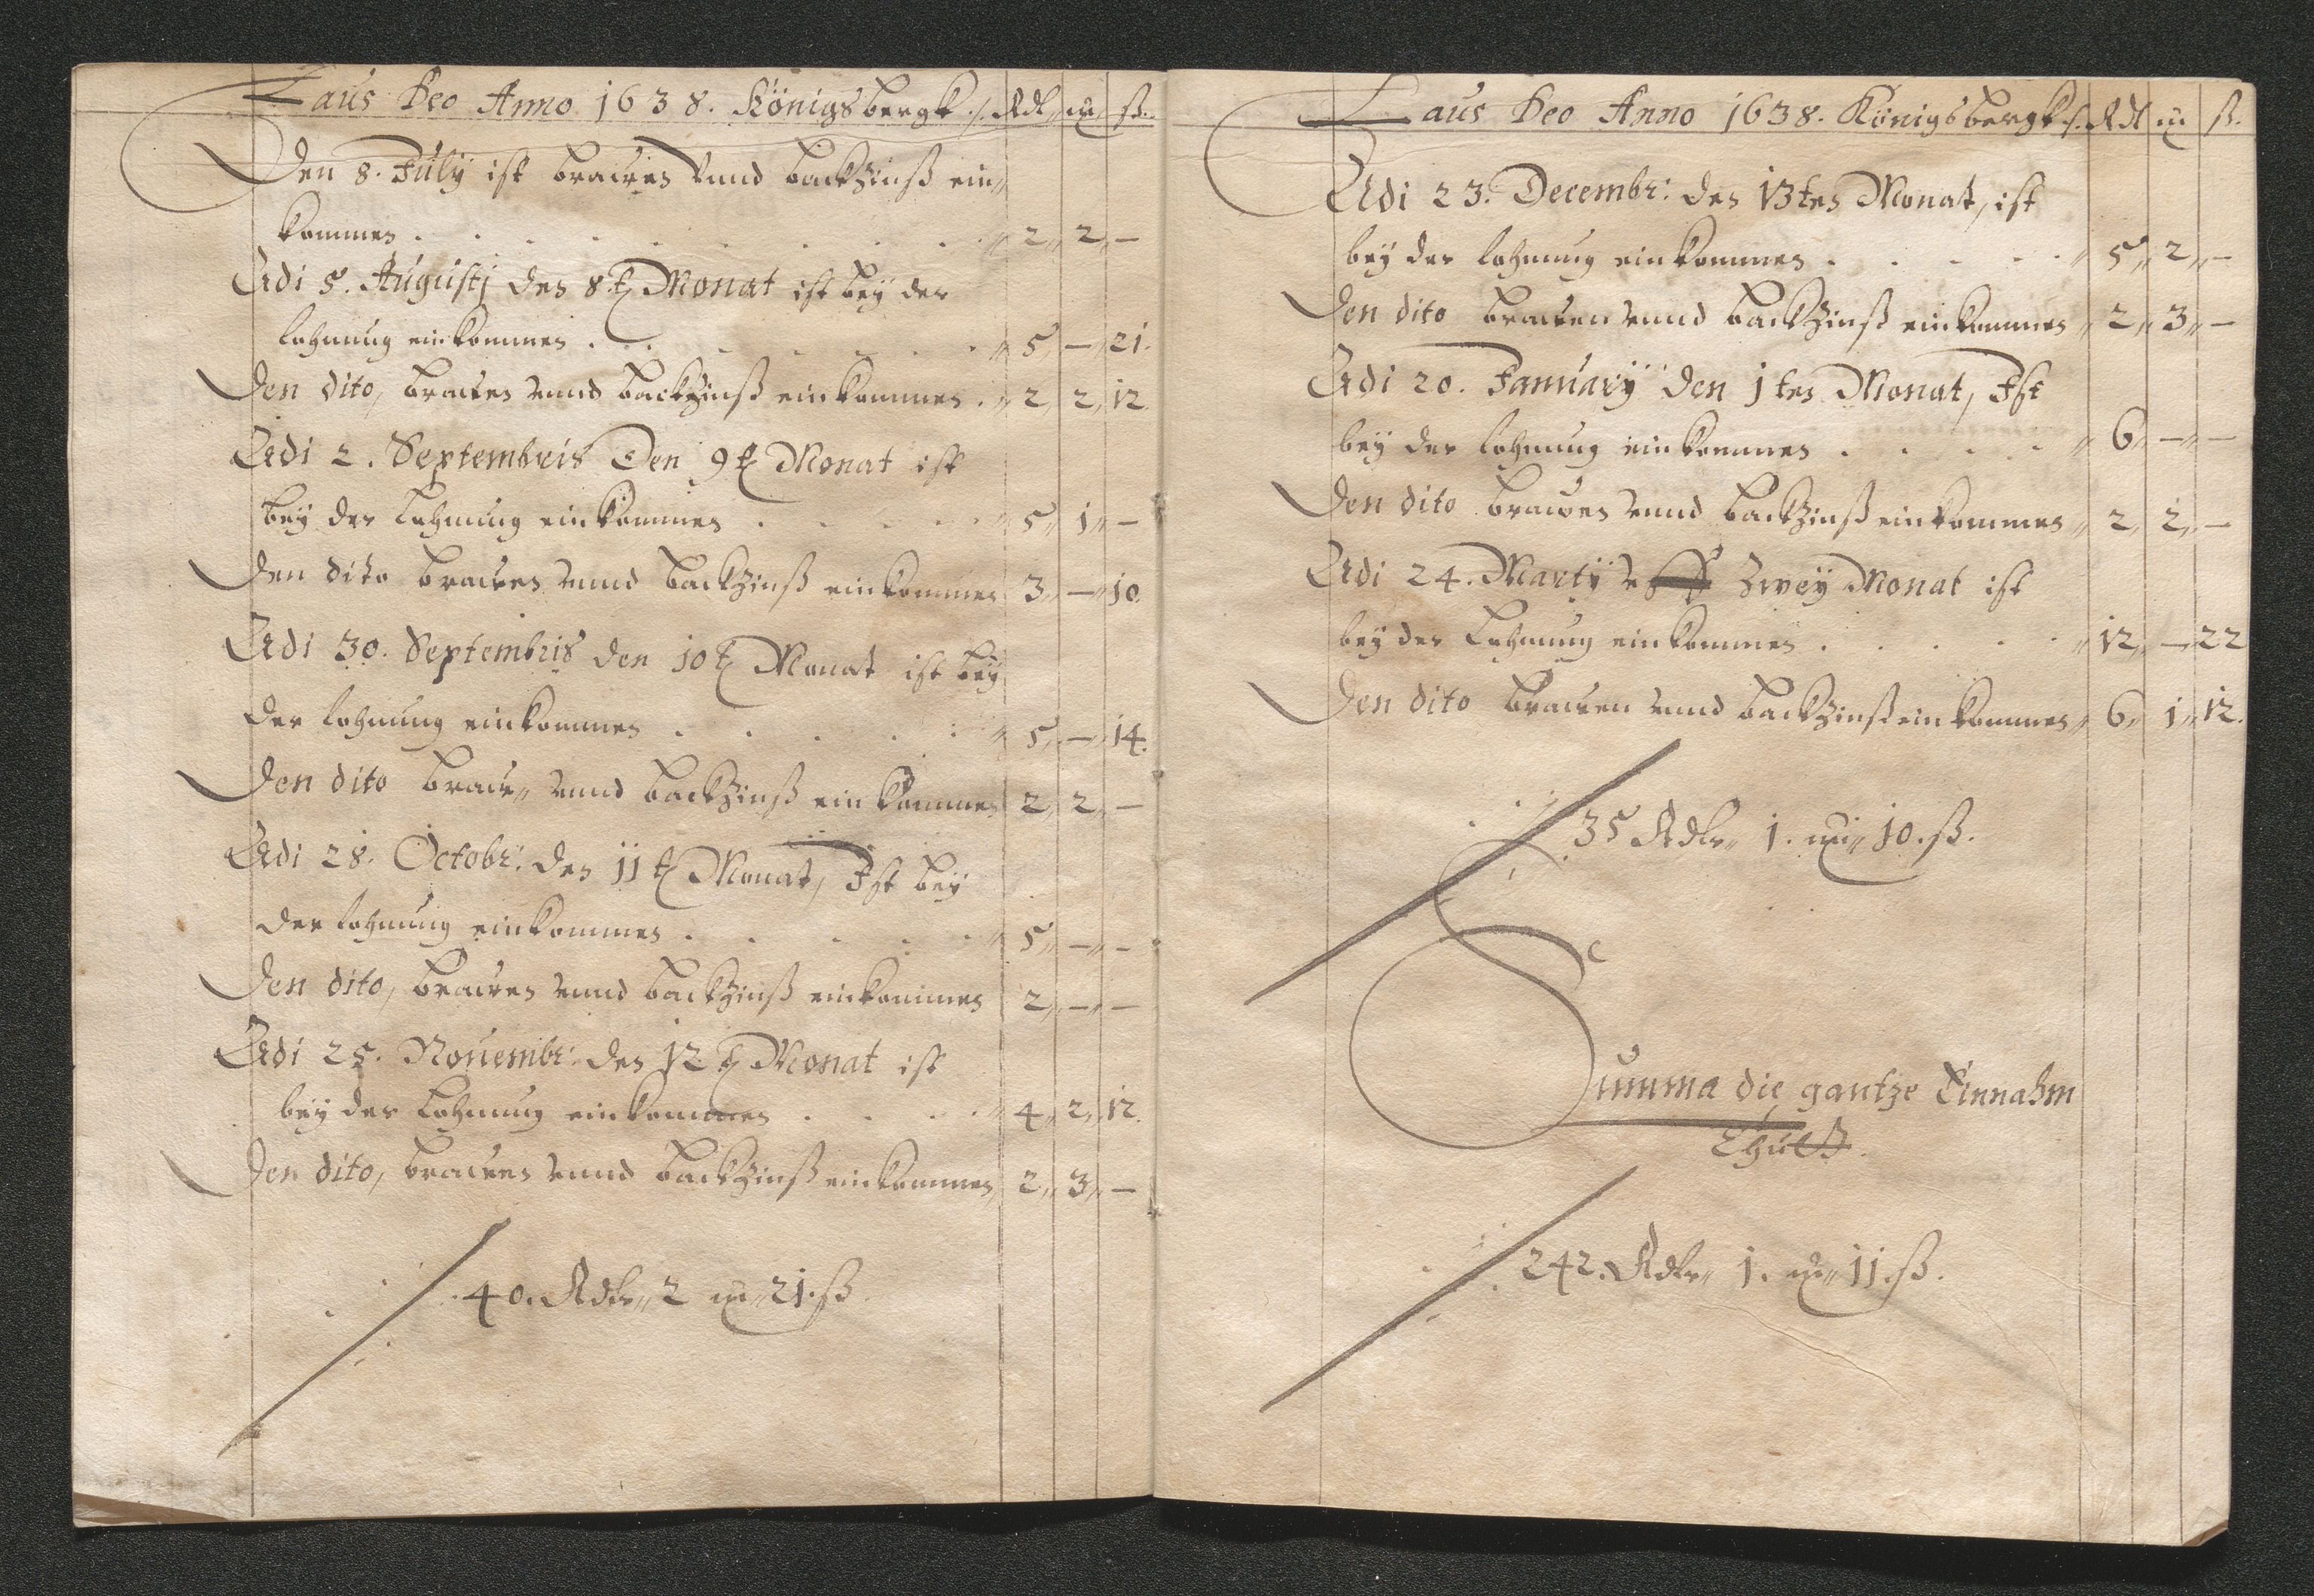 Laus Deo Anno 1638. Königsbergk ./. Rdl „ m „ ß.
Den 8. July ist brawen vnnd backzinß ein„
kommen . . . . . . . . . „ 2 „ 2 „ —
Adi 5. Augustj den 8.t Monat ist bey der
lohnung einkommen . . . . . . . „ 5 „ — „ 21.
Den dito, brawen vnnd backzinß einkommen . „ 2 „ 2 „ 12.
Adi 2. Septembris Den 9t Monat ist
bey der Lohnung einkommen . . . . . „ 5 „ 1 „ —
Den dito brawen vnnd backzinß einkommen 3 „ — „ 10.
Adi 30. Septembris den 10t Monat ist bey
der lohnung einkommen . . . . . „ 5 „ — „ 14.
Den dito braw„ vnnd backzinß einkommen 2 „ 2 „ —
Adi 28. Octobr: den 11t Monat, Ist bey
der lohnung einkommen . . . . . „ 5 „ — „ —
Den dito, brawen vnnd backzinß einkommen 2 „ — „ —
Adi 25. Nouembr: den 12.t Monat ist
bey der Lohnung einkommen . . . . „ 4 „ 2 „ 12.
Den dito, brawen vnnd backzinß einkommen „ 2 „ 3 „ —
40. Rdlr „ 2 m „ 21. ß.
Laus Deo Anno 1638. Königsbergk ./. Rdl m ß.
Adi 23. Decembr: den 13ten Monat, ist
bey der lohnung einkommen . . . . . „ 5 „ 2 „ —
Den dito brawen vnnd backzinß einkommen „ 2 „ 3 „ —
Adi 20. January den 1ten Monat, Ist
bey der lohnung einkommen . . . . „ 6 „ — „ —
Den dito brawen vnnd backzinß einkommen „ 2 „ 2 „ —
Adi 24. Marty vff Zwey Monat ist
bey der Lohnung einkommen . . . . . „ 12 „ — „ 22
Den dito brawen vnnd backzinß einkommen „ 6 „ 1 „ 12.
35 Rdlr „ 1. m „ 10. ß.
Summa die gantze Einnahm
Thutt.
242. Rdlr „ 1. m „ 11. ß.